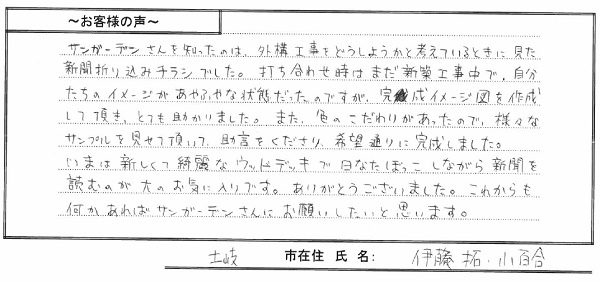 ～お客様の声～
サンガーデンさんを知ったのは、外構工事をどうしようかと考えているときに見た
新聞折り込みチラシでした。打ち合わせ時はまだ新築工事中で、自分
たちのイメージがあやふやな状態だったのですが、完成イメージ図を作成
して頂き、とても助かりました。また、色のこだわりがあったので、様々な
サンプルを見せて頂いて、助言をくださり、希望通りに完成しました。
いまは新しくて綺麗なウッドデッキで日なたぼっこしながら新聞を
読むのが大のお気に入りです。ありがとうございました。これからも
何かあればサンガーデンさんにお願いしたいと思います。
土岐 市在住 氏 名: 伊藤 拓・小百合